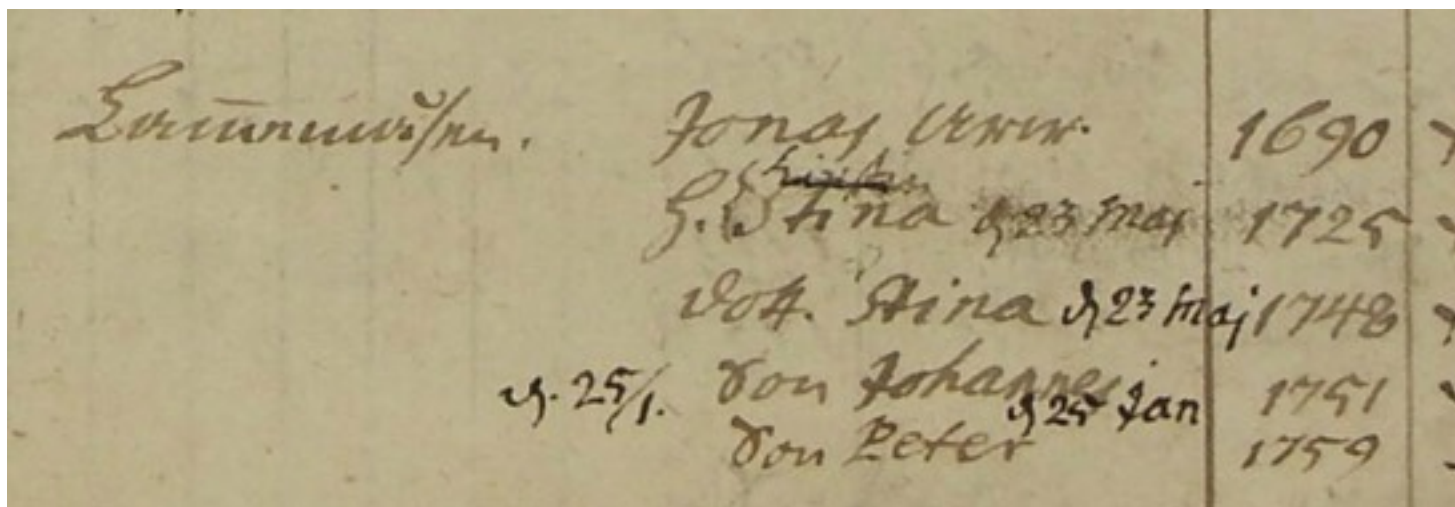 Jonas Arvr. 1690
H. Stina d 23 maj 1725
dott. Stina d 23 maj 1748
d. 25/1. Son Johannes d 25 Jan 1751
Son Peter 1759